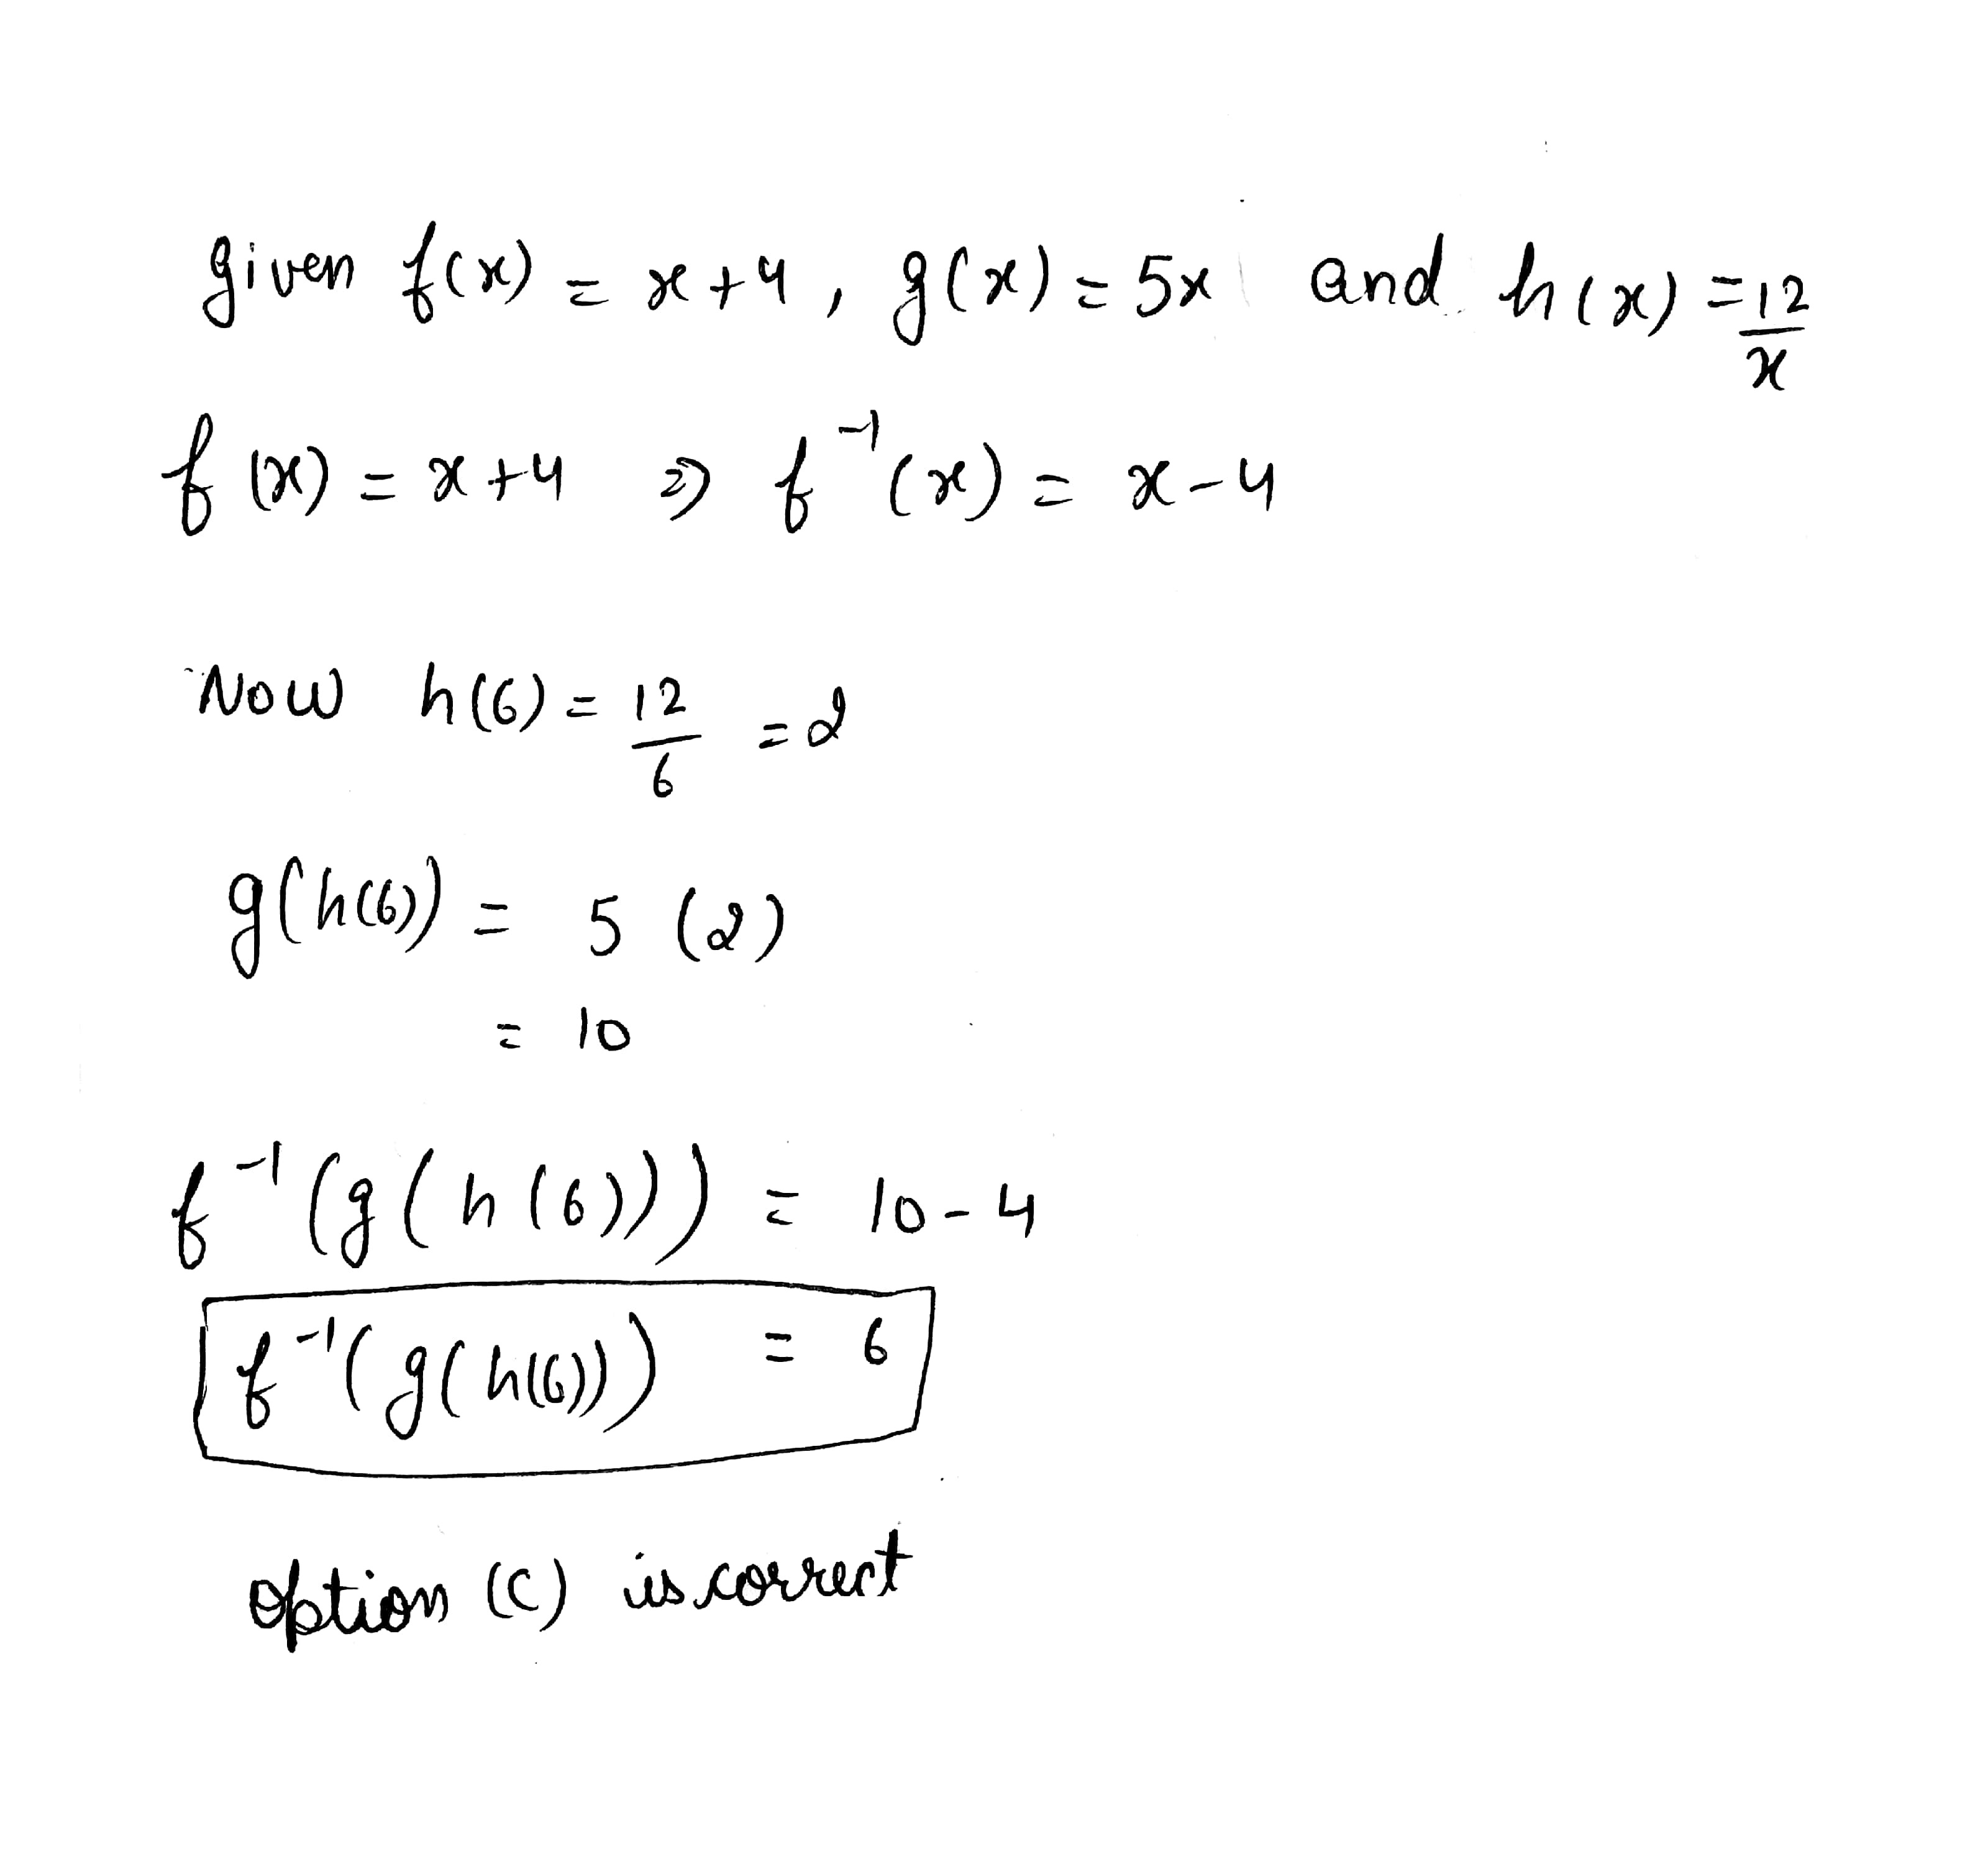 given f(x) = x+4, g(x) = 5x and h(x) = 12/x
f(x) = x+4 ⇒ f⁻¹(x) = x-4
Now h(6) = 12/6 = 2
g(h(6)) = 5 (2)
= 10
f⁻¹(g(h(6))) = 10-4
f⁻¹(g(h(6))) = 6
option (c) is correct